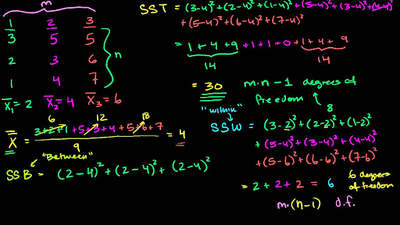 m
1 2 3
3 5 5
2 3 6
1 4 7
n
X̄₁ = 2 X̄₂ = 4 X̄₃ = 6
6 12 18
X̿ = 3+2+1+5+3+4+5+6+7 / 9 = 4
"Between"
SSB = (2-4)² + (2-4)² + (2-4)²
SST = (3-4)² + (2-4)² + (1-4)² + (5-4)² + (3-4)² + (4-4)²
+ (5-4)² + (6-4)² + (7-4)²
= 1 + 4 + 9 + 1 + 1 + 0 + 1 + 4 + 9
14 14
= 30 m·n - 1 degrees of
freedom
8
"within"
SSW = (3-2)² + (2-2)² + (1-2)²
+ (5-4)² + (3-4)² + (4-4)²
+ (5-6)² + (6-6)² + (7-6)²
= 2 + 2 + 2 = 6 6 degrees
of freedom
m·(n-1) d.f.